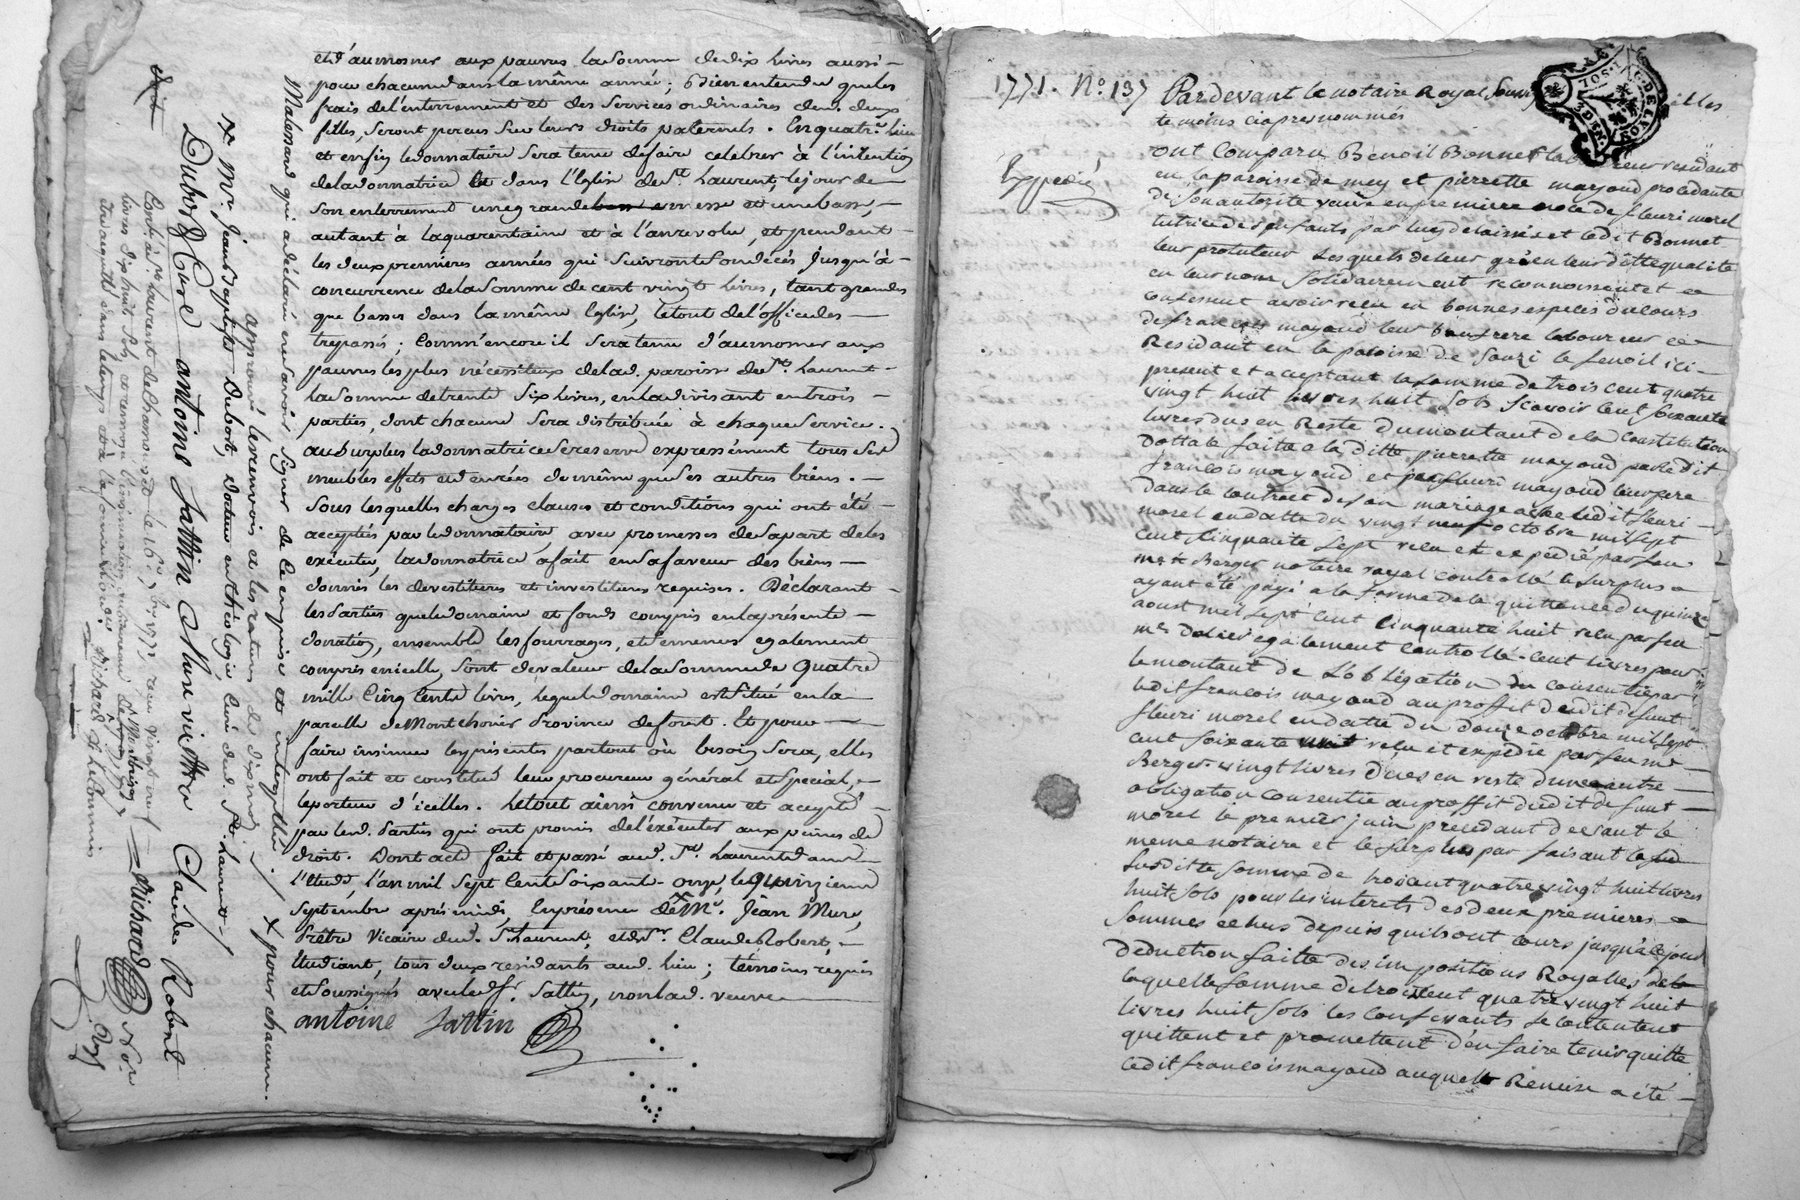 et d'aumosner aux pauvres la somme de dix livres aussi
pour chacune dans la même année; bien entendu que les
frais de l'enterrement et des services ordinaires desd. deux
filles, seront percus sur leurs droits paternels. En quatre lieu
et enfin le donnataire sera tenu de faire celebrer à l'intention
de la donnatrice et dans l'Eglise de St. Laurent, le jour de
son enterrement une grande messe et une basse,
autant à la quarentaine et à l'an revolu, et pendant
les deux premieres années qui suivront son decès jusqu'à
concurrence de la somme de cent vingt livres, tant grandes
que basses dans la même Eglise, le tout de l'office des
trepassés; comm'encore il sera tenu d'aumosner aux
pauvres les plus nécessiteux de lad. paroisse de St. Laurent
la somme de trente six livres, en la divisant en trois
parties, dont chacune sera distribuée à chaque service.
au surplus la donnatrice se reserve expressément tous ses
meubles effets et denrées de même que ses autres biens.
Sous lesquelles charges clauses et conditions qui ont été
acceptés par le donnataire avec promesses de sa part de les
exécuter, la donnatrice a fait en sa faveur des biens
donnés les devestitures et investitures requises. Déclarant
les parties que le domaine et fonds compris en la présente
donation, ensemble les fourrages, et semences egalement
compris en icelle, sont de valeur de la somme de quatre
mille cinq cents livres, lequel domaine est situé en la
parcelle de Montchovet Province de forest. Et pour
faire insinuer les présentes partout où besoin sera, elles
ont fait et constitué leur procureur général et special,
le porteur d'icelles. Le tout ainsi convenu et accepté
par lesd. Parties qui ont promis de l'exécuter aux peines de
droit. Dont acte fait et passé aud. St. Laurent dans
l'Etude, l'an mil sept cent soixante onze, le quinzieme
septembre après midi, En présence de Mr. Jean Mure,
Prêtre Vicaire dud. St. Laurent, et de Sr. Claude Robert,
Etudiant, tous deux residants aud. lieu; témoins requis
et soussignés avec led. Sr. Sattin, non lad. veuve
antoine Sattin
Malessard qui a déclaré ne savoir signer de ce enquise et interpellée. / x pour chacune.
approuvé les renvois et les ratures de dix mots
x Mr. Jean Baptiste Dubost, Docteur en théologie, Curé dud. St. Laurent
Dubost Curé antoine Sattin Mure vicaire Claude Robert
Richard Nore. Roy.
1771. No. 137
Expedié,
Pardevant le notaire Royal sous
temoins ciapres nommés
ont comparu Benoit Bonnet residant
en la paroisse de mey et pierrette mayoud procedante
de son autorité vauve en premiere noce de fleuri morel
tutrice des enfants par luy delaissés et ledit Bonnet
leur protuteur Lesquels de leur gré en leur ditte qualité
en leur nom solidairement reconnoissent et
confessent avoir reçu en bonnes especes du cours
de francois mayoud leur beaufrere laboureur
Residant en la paroisse de souzi le benoit ici
present et acceptant la somme de trois cent quatre
vingt huit livres huit sols scavoir cent soixante
livres dus en Reste du montant de la constitution
dottale faite a la ditte pierrette mayoud par ledit
francois mayoud et par fleuri mayoud leur pere
dans le contrat de son mariage avec ledit fleuri
morel en datte du vingt neuf octobre mil sept
cent cinquante sept reçu et expedié par feu
me Berger notaire royal controllé le surplus
ayant été payé a la forme de la quittance du quinze
aoust mil sept cent cinquante huit reçu par feu
me egalement controllé cent livres pour
le montant de l'obligation consentie par
ledit francois mayoud au proffit dudit defunt
fleuri morel en datte du douze octobre mil sept
cent soixante reçu et expedié par feu me
Berger vingt livres dues en reste d'une autre
obligation consentie au proffit dudit defunt
morel le premier juin precedant devant le
meme notaire et le surplus parfaisant la
susditte somme de trois cent quatre vingt huit livres
huit sols pour les interets des deux premieres
sommes echus depuis quils ont cours jusqu'a ce jour
deduction faitte des impositions Royalles de
laquelle somme de trois cent quatre vingt huit
livres huit sols les confessants se contentent
quittent et promettent d'en faire tenir quitte
ledit francois mayoud auquel Remise a été